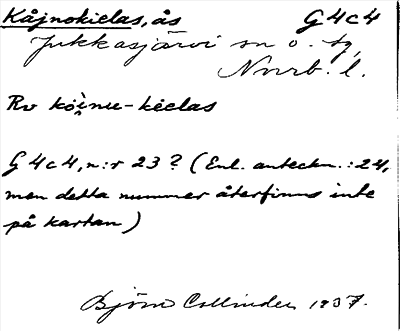 Kåjnokielas, ås G4c4
Jukkasjärvi sn o. tg,
Norrb. l.
Rv köi̭nu-kēelas
G4c4, n:r 23? (Enl. anteckn.: 24,
men detta nummer återfinns inte
på kartan)
Björn Collinder 1937.